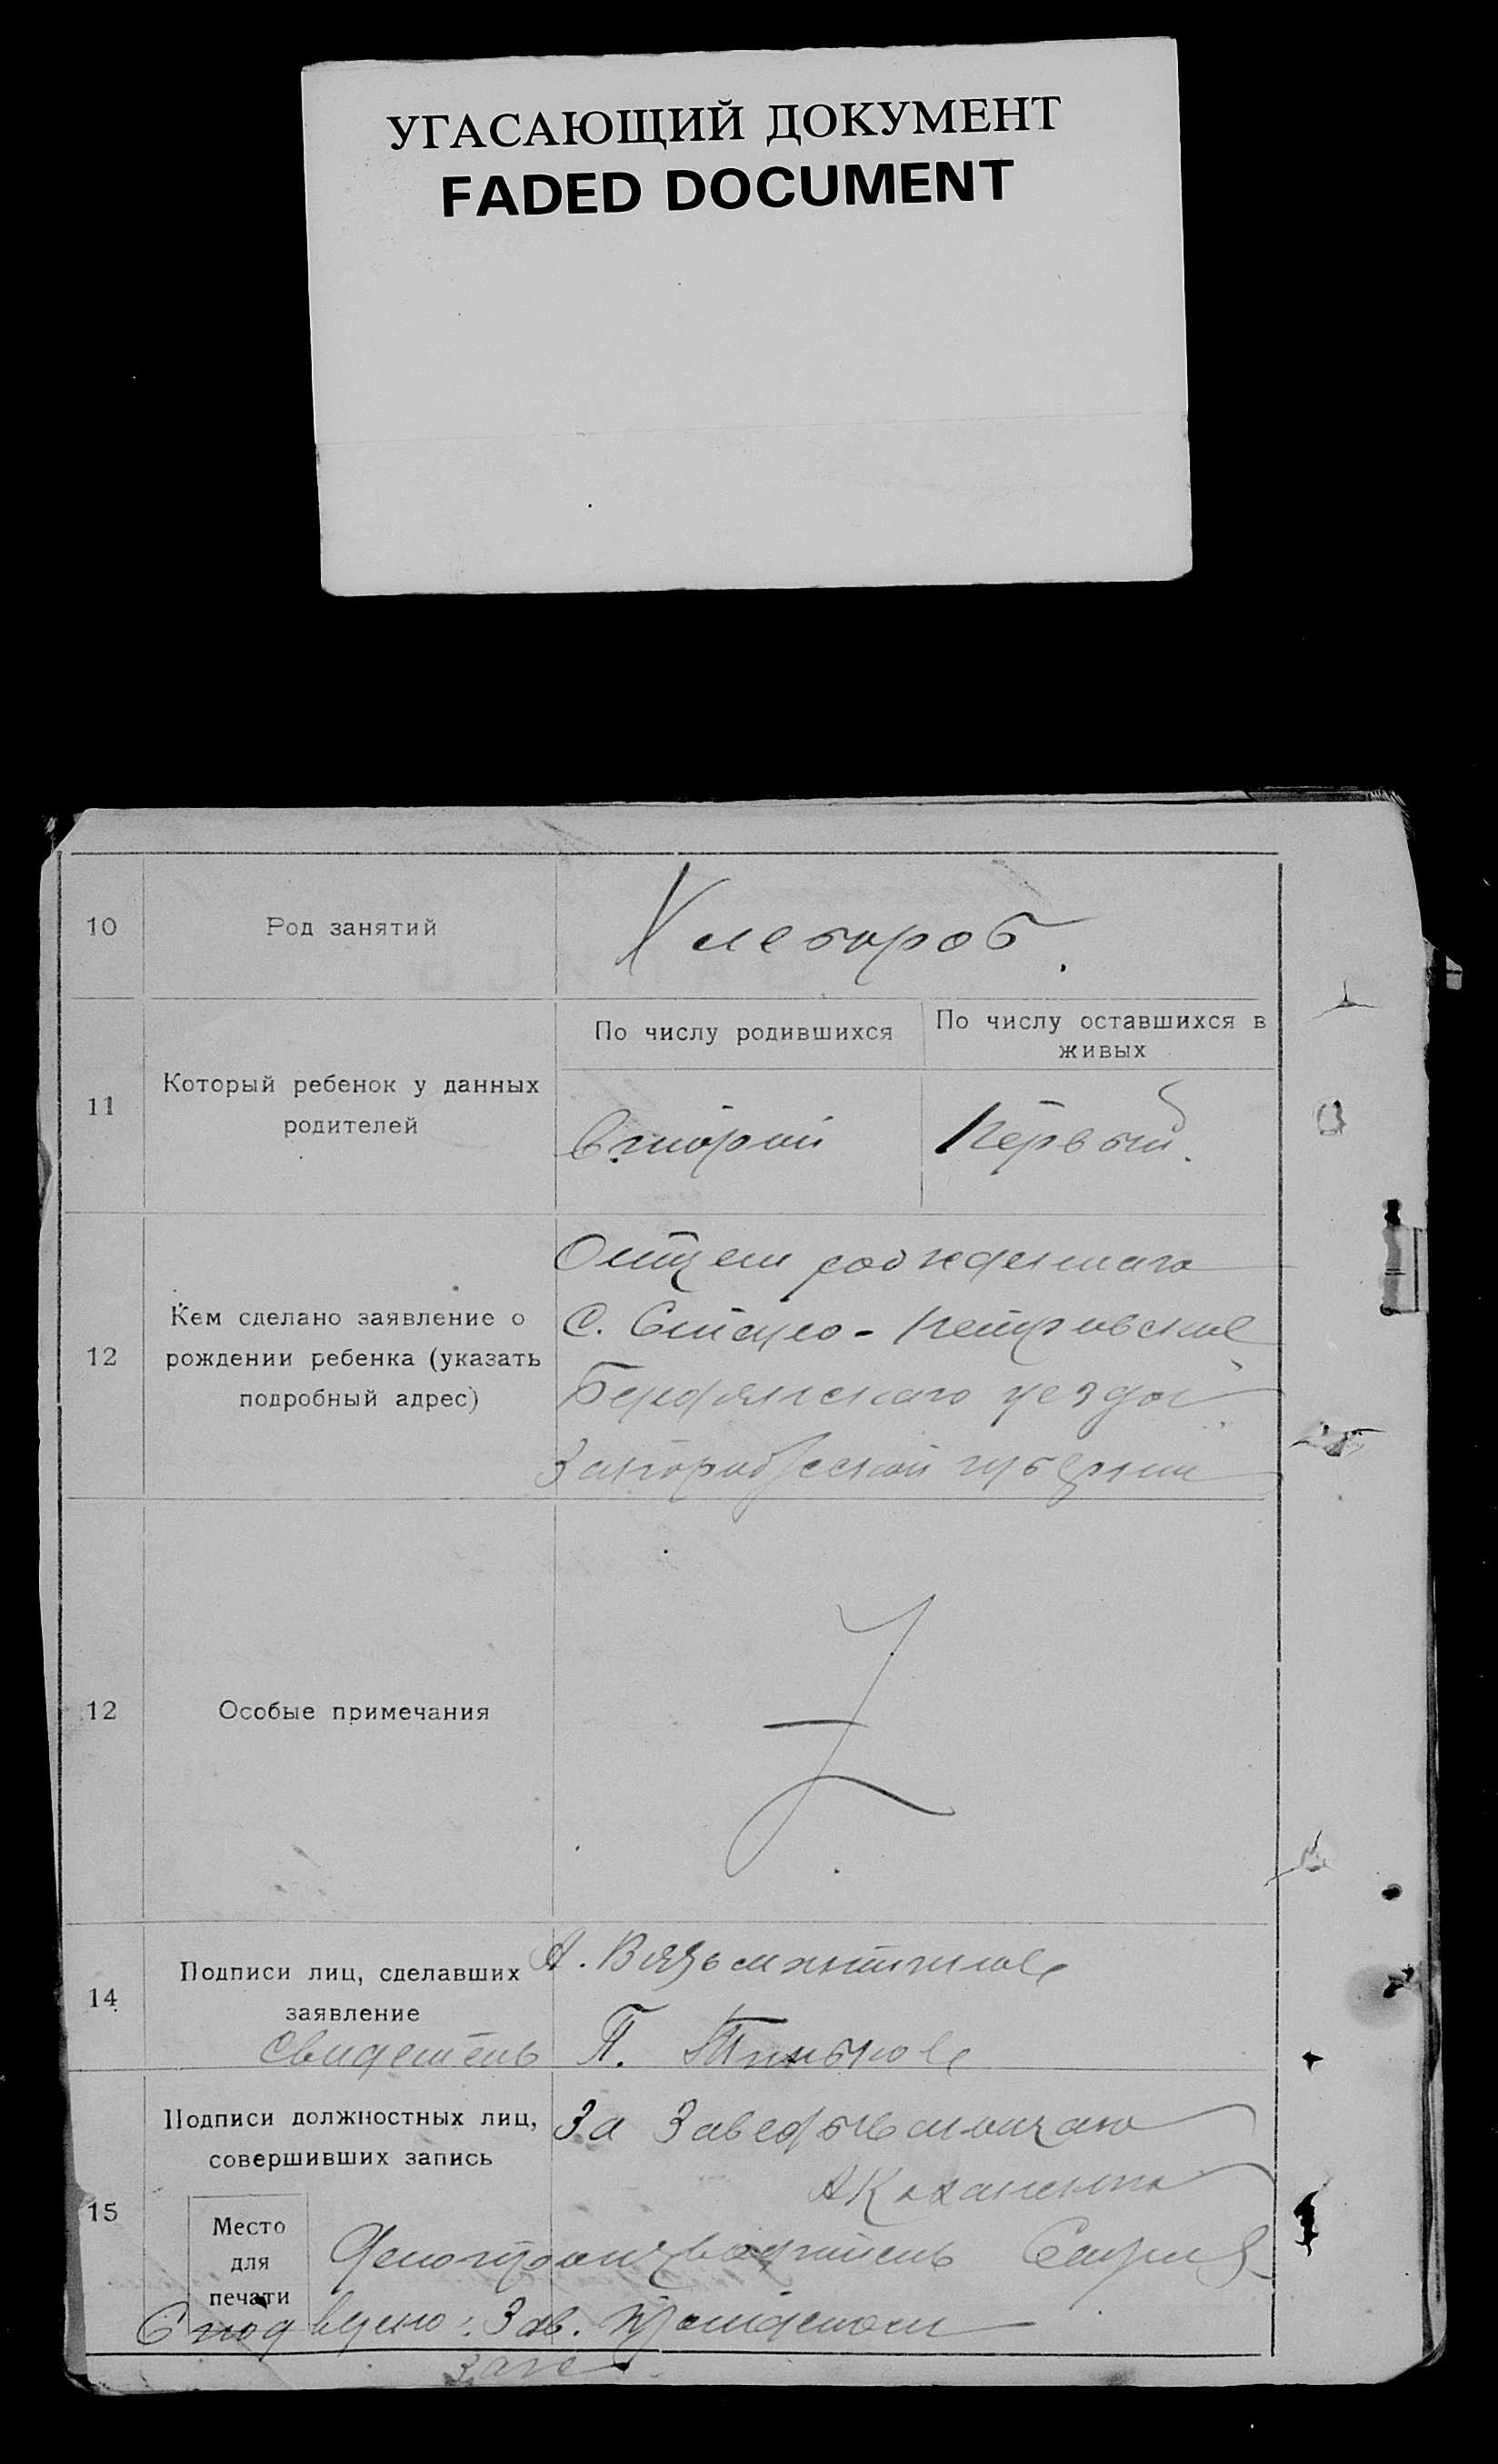 УГАСАЮЩИЙ ДОКУМЕНТ
FADED DOCUMENT
10
Род занятий
Хлебороб.
11
Который ребенок у данных
родителей
По числу родившихся
По числу оставшихся в
живых
второй
Первый.
12
Кем сделано заявление о
рождении ребенка (указать
подробный адрес)
Отцем рожденнаго
С. Ново-Петровское
Бердянскаго уезда
Запорожской губернии
12
Особые примечания
14
Подписи лиц, сделавших
заявление
свидетель
А.
П.
15
Подписи должностных лиц,
совершивших запись
За Заведывающаго
Место
для
печати
Делопроизводитель
верно: Зав.
загс